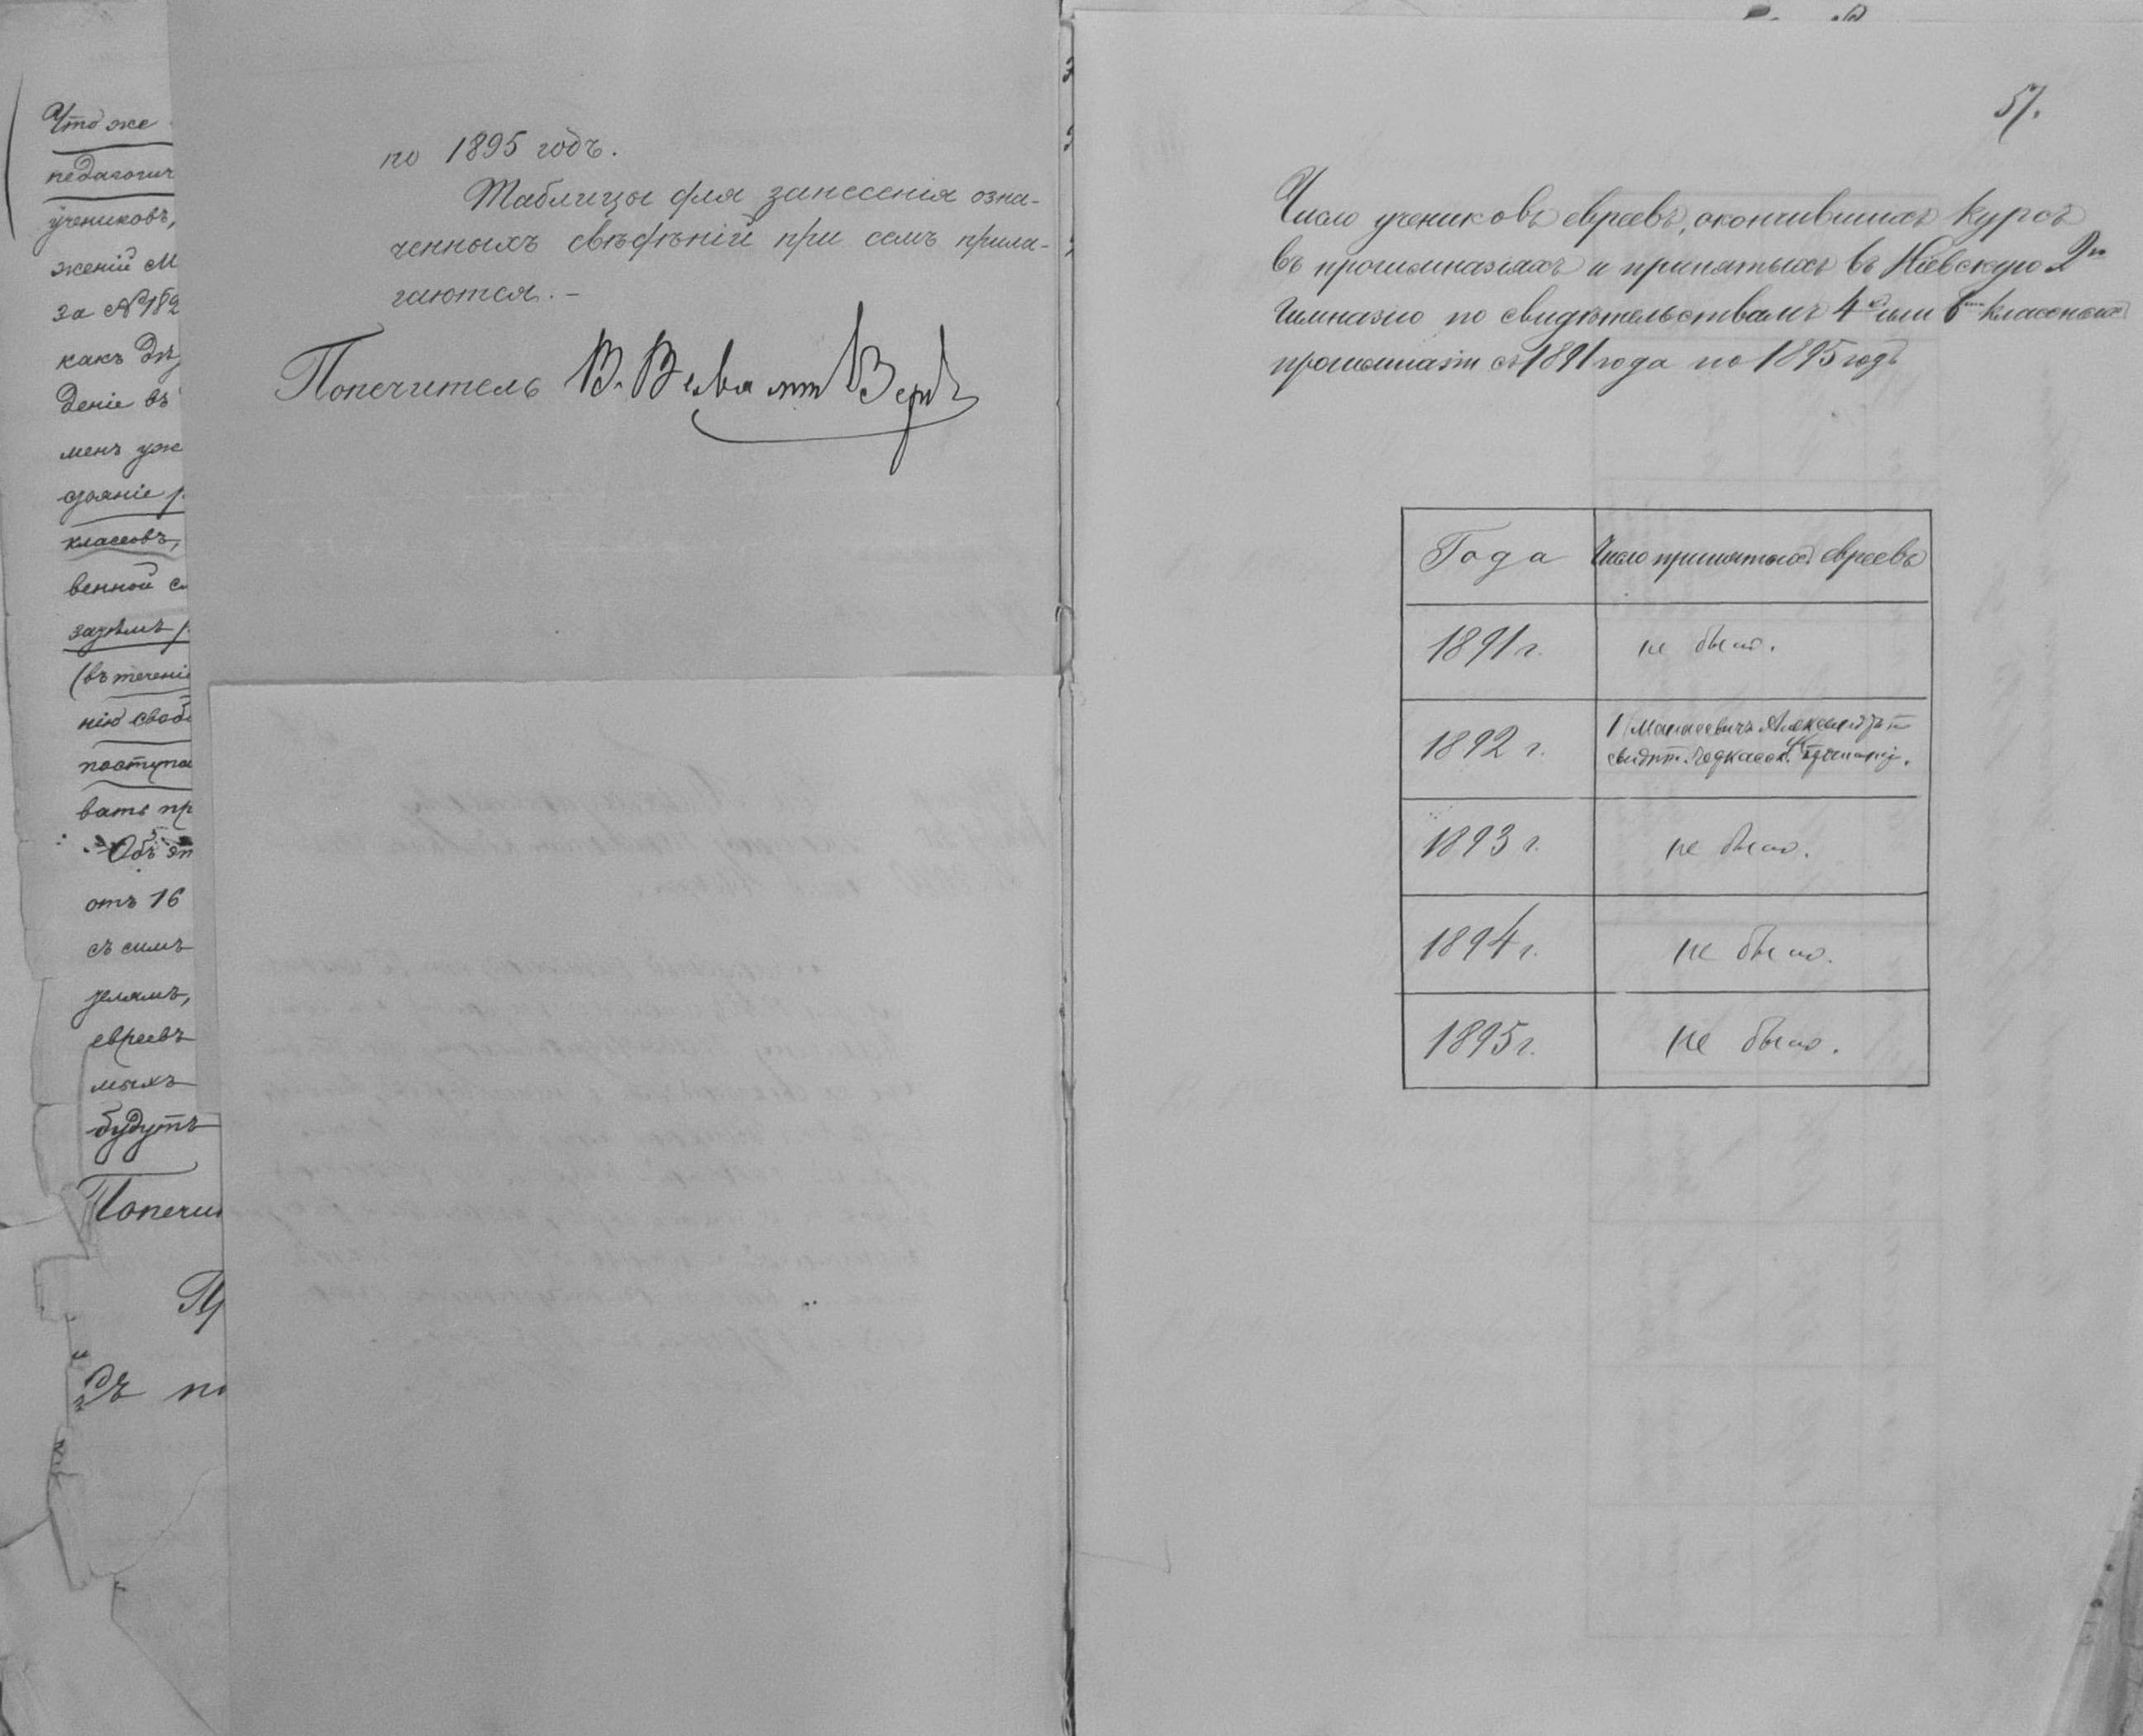 Что же
педагогич
учениковъ,
женій М
за № 182
какъ
деніе въ
менъ уж
классовъ,
венной с
(въ теченіи
нію свод
поступа
вать пр
Объ эт
отъ 16
съ симъ
евреевъ
мыхъ
будутъ
Попечи
Пр
по
по 1895 годъ.
Таблицы для занесенія озна-
ченныхъ свѣдѣній при семъ прила-
гаются. –
Попечитель В. Вельяминъ
57.
Число учениковъ евреевъ, окончившихъ курсъ
въ прогимназіяхъ и принятыхъ въ Кіевскую 2ю
гимназію по свидѣтельствамъ 4хъ или 6ти классныхъ
прогимназій съ 1891 года по 1895 годъ
Года Число принятыхъ евреевъ
1891 г. не было.
1892 г. 1/ Манасевичъ Александръ по
свидѣт. прогимназіи.
1893 г. не было.
1894 г. не было.
1895 г. не было.